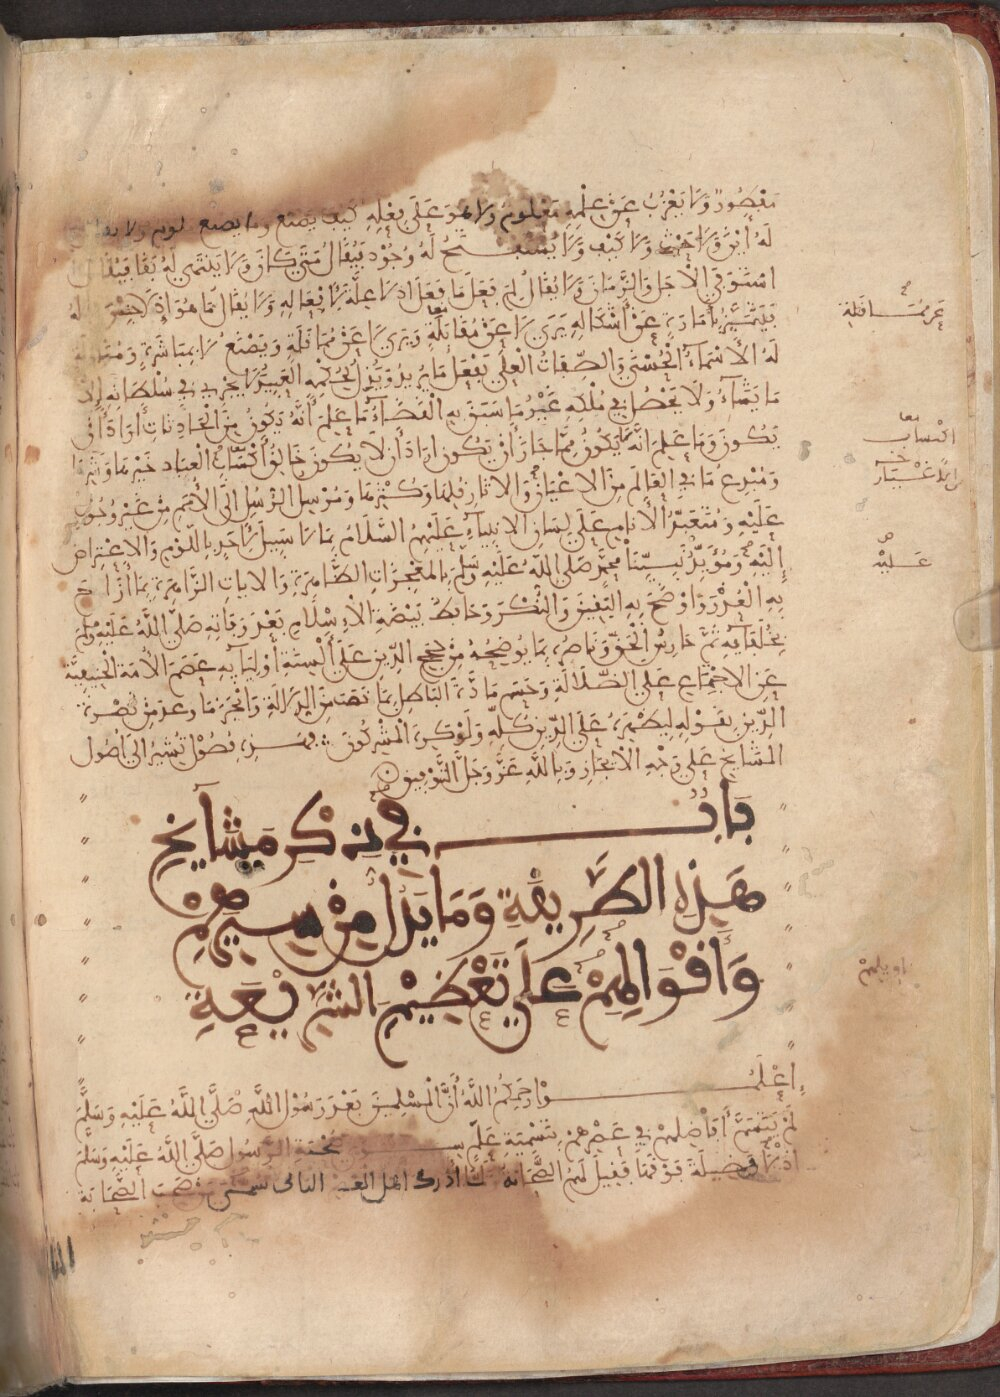 مَقْصُودٌ وَلَا يَعْزُبُ عَنْ عِلْمِهِ مَعْلُومٌ وَلَا هُوَ عَلَى فِعْلِهِ كَيْفَ يَصْنَع وما يصنع ملوم ولا يقال
لَهُ أَيْنَ وَلَا حَيْثُ وَلَا كَيْفَ وَلَا يُسْتَفْتَحُ لَهُ وُجُودٌ فَيُقَالُ مَتَى كَانَ وَلَا يَنْتَهِي لَهُ بَقَا فَيُقَالُ
اسْتَوْفَى الْأَجَلَ وَالزَّمَانَ وَلَا يُقَالُ لِمَ فَعَلَ مَا فَعَلَ اِذْ لَا عِلَّةَ لِأَفْعَالِهِ وَلَا يُقَالُ مَا هُوَ إِذْ لَا جِنْسَ لَهُ
فَيَتَمَيَّزُ بِأَمَارَةٍ عَنْ أَشْكَالِهِ يُرَى لَا عَنْ مُقَابَلَةٍ وَيَرَى لَا عَنْ مُمَاقَلَةٍ وَيَصْنَعُ لَا بِمُبَاشَرَةٍ وَمُزَاوَلَةٍ
لَهُ الْأَسْمَاءُ الْحُسْنَى وَالصِّفَاتُ الْعُلَى يَفْعَلُ مَا يُرِيدُ وَيَذِلُّ لِحُكْمِهِ الْعَبِيدُ لَا يَجْرِي فِي سُلْطَانِهِ إِلَّا
مَا يَشَاءُ وَلَا يَحْصُلُ فِي مُلْكِهِ غَيْرُ مَا سَبَقَ بِهِ الْقَضَاءُ مَا عَلِمَ أَنَّهُ يَكُونُ مِنَ الْحَادِثَاتِ أَرَادَ أَنْ
يَكُونَ وَمَا عَلِمَ اَنَّهُ لَا يَكُونُ مِمَّا جَازَ أَنْ يَكُونَ اَرَادَ أَنْ لَا يَكُونَ خَالِقُ أَكْسَابِ الْعِبَادِ خَيْرِهَا وَشَرِّهَا
وَمُبْدِعُ مَا فِي الْعَالَمِ مِنَ الاعْيَانِ وَالاثَارِ قُلِّهَا وَكُثْرِهَا وَمُرْسِلُ الرُّسُلِ إِلَى الْأُمَمِ مِنْ غَيْرِ وُجُوبٍ
عَلَيْهِ وَمُتَعَبِّدُ الْأَنَامِ عَلَى لِسَانِ الانْبِيَاءِ عَلَيْهِمُ السَّلَامُ بِمَا لَا سَبِيلَ لِأَحَدٍ بِاللَّوْمِ وَالاِعْتِرَاضِ
إِلَيْهِ وَمُؤَيِّدُ نَبِيِّنَا مُحَمَّدٍ صَلَّى اللَّهُ عَلَيْهِ وَسَلَّمَ بِالْمُعْجِزَاتِ الظَّاهِرَةِ وَالايَاتِ الزَّاهِرَةِ بِمَا أَزَاحَ
بِهِ الْعُذْرَ وَاَوْضَحَ بِهِ الْيَقِينَ وَالنُّكْرَ وَحَافِظُ بَيْضَةِ الْاِسْلَامِ بَعْدَ وَفَاتِهِ صَلَّى اللَّهُ عَلَيْهِ وَسَلَّمَ
بِخُلَفَائِهِ ثُمَّ حَارِسُ الْحَقِّ وَنَاصِرُهُ بِمَا يُوضِحُهُ مِنْ حُجَجِ الدِّينِ عَلَى أَلْسِنَةِ أَوْلِيَائِهِ عَصَمَ الْأُمَّةَ الْحَنِيفِيَّةَ
عَنِ الاِجْتِمَاعِ عَلَى الضَّلَالَةِ وَحَسَمَ مَادَّةَ الْبَاطِلِ بِمَا نَصَبَ مِنَ الدَّلَالَةِ وَأَنْجَزَ مَا وعد مِنْ نُصْرَةِ
الدِّينِ بِقَوْلِهِ لِيُظْهِرَهُ عَلَى الدِّينِ كُلِّهِ وَلَوْ كَرِهَ الْمُشْرِكُونَ فَهَذِهِ فُصُولٌ تُشِيرُ الى أُصُولِ
المَشَايِخِ عَلَى وَجْهِ الْاِيجَازِ وَبِاللَّهِ عَزَّ وَجَلَّ التَّوْفِيقُ
بَابٌ فِي ذِكْرِ مَشَايِخِ
هَذِهِ الطَّرِيقَةِ وَمَا يَدُلُّ مِنْ سِيَرِهِمْ
وَأَقْوَالِهِمْ عَلَى تَعْظِيمِ الشَّرِيعَةِ
إِعْلَمُوا رَحِمَكُمُ اللَّهُ أَنَّ الْمُسْلِمِينَ بَعْدَ رَسُولِ اللَّهِ صَلَّى اللَّهُ عَلَيْهِ وَسَلَّمَ
لَمْ يَتَسَمَّ أَفَاضِلُهُمْ فِي عَصْرِهِمْ بِتَسْمِيَةِ عَلَمٍ سِوَى صُحْبَةِ الرَّسُولِ صَلَّى اللَّهُ عَلَيْهِ وَسَلَّمَ
اذْ لَا فَضِيلَةَ فَوْقَهَا فَقِيلَ لَهُمُ الصَّحَابَةُ وَلَمَّا أَدْرَكَ اهل العصر الثانى سمي مَنْ صَحِبَ الصَّحَابَةَ
عَنْ مُمَاقَلَةٍ
اكْسَاب
الاعْيَان
عَلَيْهِ